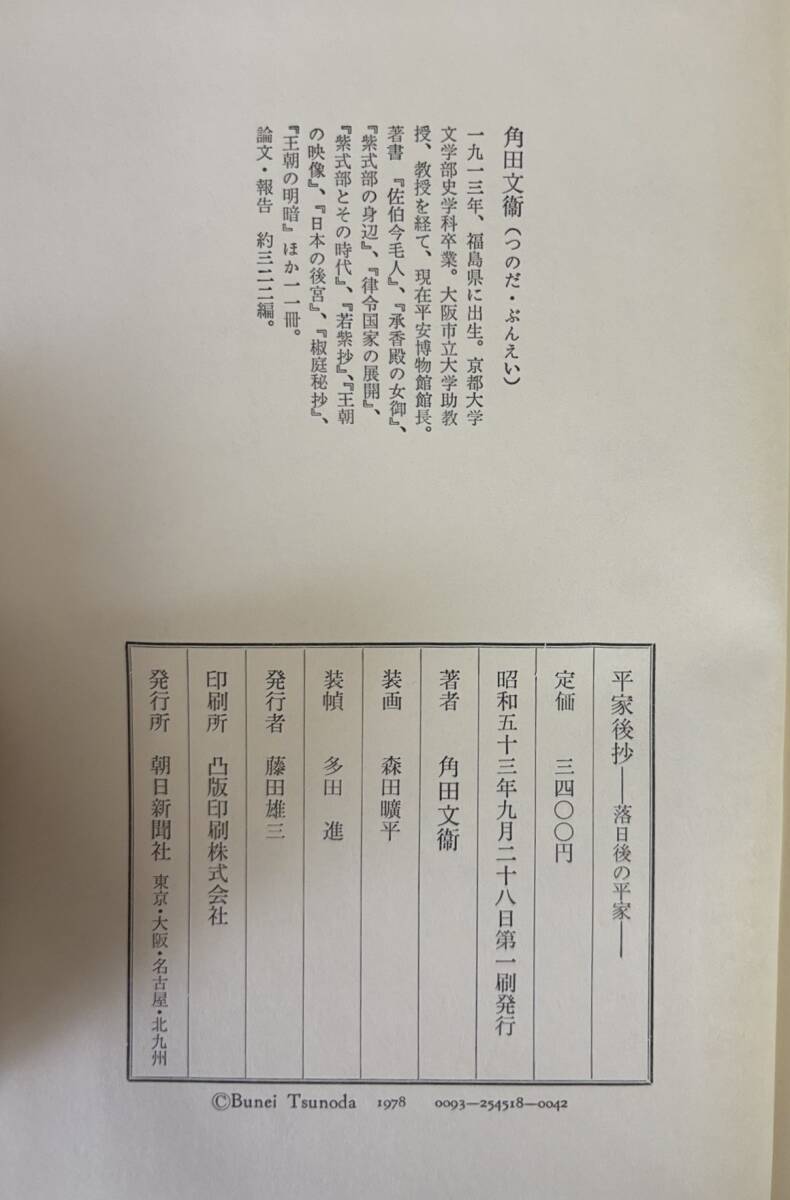 角田文衞(つのだ・ぶんえい)
一九一三年、福島県に出生。京都大学
文学部史学科卒業。大阪市立大学助教
授、教授を経て、現在平安博物館館長。
著書 『佐伯今毛人』、『承香殿の女御』、
『紫式部の身辺』、『律令国家の展開』、
『紫式部とその時代』、『若紫抄』、『王朝
の映像』、『日本の後宮』、『椒庭秘抄』、
『王朝の明暗』ほか一一冊。
論文・報告 約三二二編。
平家後抄――落日後の平家――
定価 三四〇〇円
昭和五十三年九月二十八日第一刷発行
著者 角田文衞
装画 森田曠平
装幀 多田 進
発行者 藤田雄三
印刷所 凸版印刷株式会社
発行所 朝日新聞社 東京・大阪・名古屋・北九州
©Bunei Tsunoda 1978 0093—254518—0042